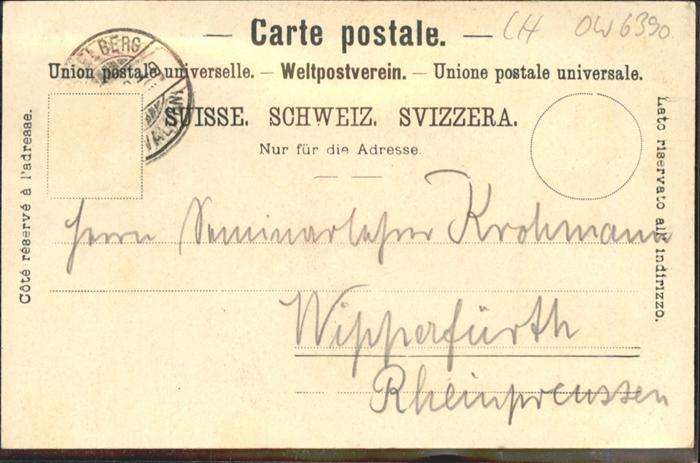 CH OW 6390
— Carte postale. —
Union postale universelle. — Weltpostverein. — Unione postale universale.
SUISSE. SCHWEIZ. SVIZZERA.
Nur für die Adresse.
Côté réservé à l'adresse.
Lato riservato all' indirizzo.
Herrn Seminarlehrer Krohmann
Wipperfürth
Rheinpreussen